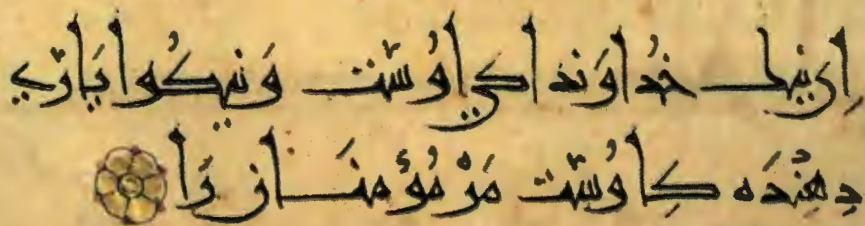 اِی نیک خُداوَندا کی اوُست وَ نیکُوا یَاری
دِهنْدَه کِاوُست مَرْ مُؤمنَان رَا